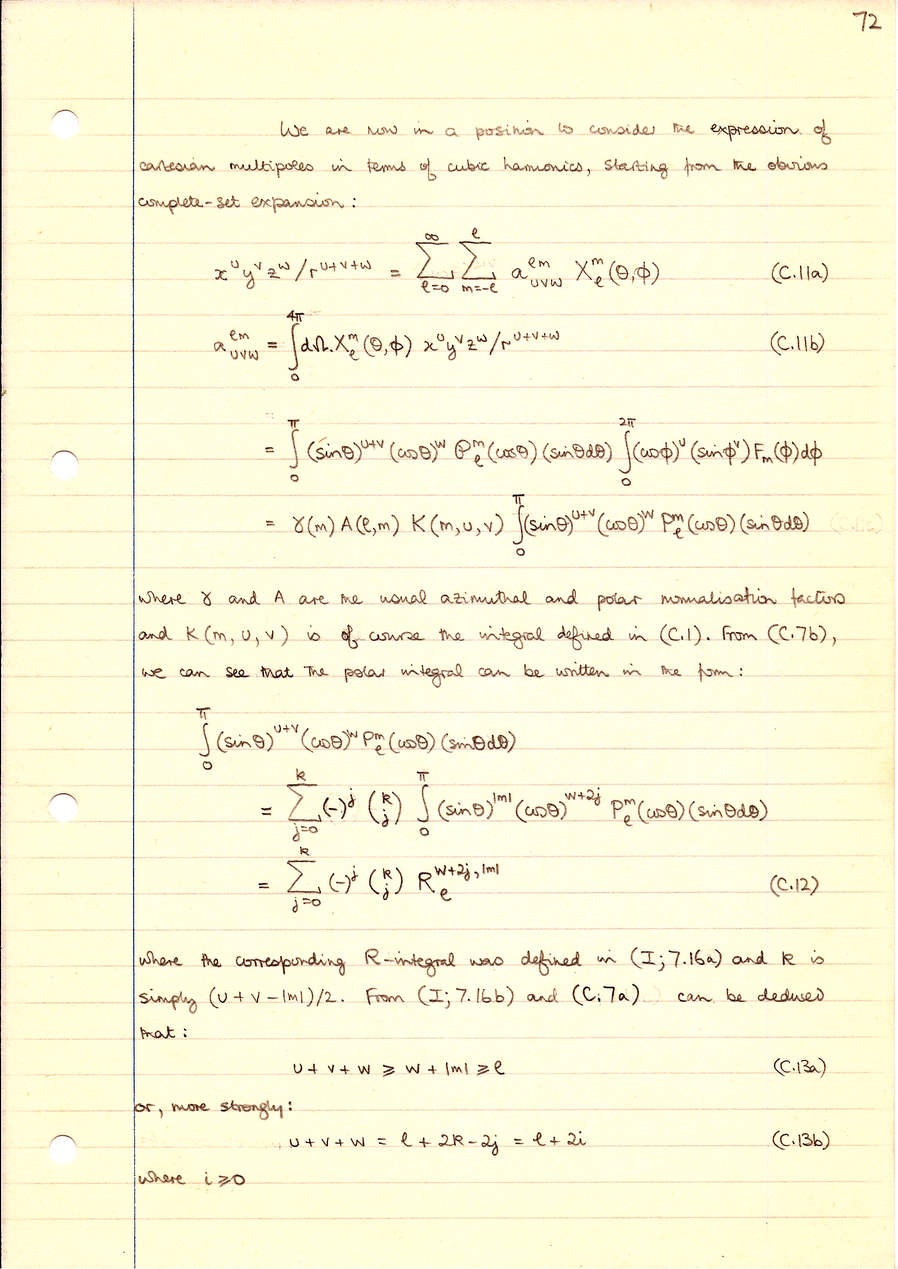 72
We are now in a position to consider the expression of
cartesian multipoles in terms of cubic harmonics, starting from the obvious
complete-set expansion :
x^u y^v z^w / r^{u+v+w} = ∑_{ℓ=0}^{∞} ∑_{m=-ℓ}^{ℓ} a^{ℓm}_{uvw} X_ℓ^m (θ,ϕ) (C.11a)
a^{ℓm}_{uvw} = ∫_0^{4π} dΩ. X_ℓ^m (θ,ϕ) x^u y^v z^w / r^{u+v+w} (C.11b)
= ∫_0^π (sinθ)^{u+v} (cosθ)^w 𝒫_ℓ^m (cosθ) (sinθdθ) ∫_0^{2π} (cosϕ)^u (sinϕ^v) F_m(ϕ)dϕ
= γ(m) A(ℓ,m) K(m,u,v) ∫_0^π (sinθ)^{u+v} (cosθ)^w P_ℓ^m (cosθ) (sinθdθ)
where γ and A are the usual azimuthal and polar normalisation factors
and K(m,u,v) is of course the integral defined in (C.1). From (C.7b),
we can see that the polar integral can be written in the form :
∫_0^π (sinθ)^{u+v} (cosθ)^w P_ℓ^m (cosθ) (sinθdθ)
= ∑_{j=0}^{k} (-)^j (k j) ∫_0^π (sinθ)^{|m|} (cosθ)^{w+2j} P_ℓ^m (cosθ) (sinθdθ)
= ∑_{j=0}^{k} (-)^j (k j) R_ℓ^{w+2j,|m|} (C.12)
where the corresponding R-integral was defined in (I; 7.16a) and k is
simply (u+v-|m|)/2. From (I; 7.16b) and (C.7a) can be deduced
that :
u+v+w ⩾ w+|m| ⩾ ℓ (C.13a)
or, more strongly :
u+v+w = ℓ+2k-2j = ℓ+2i (C.13b)
where i ⩾ 0